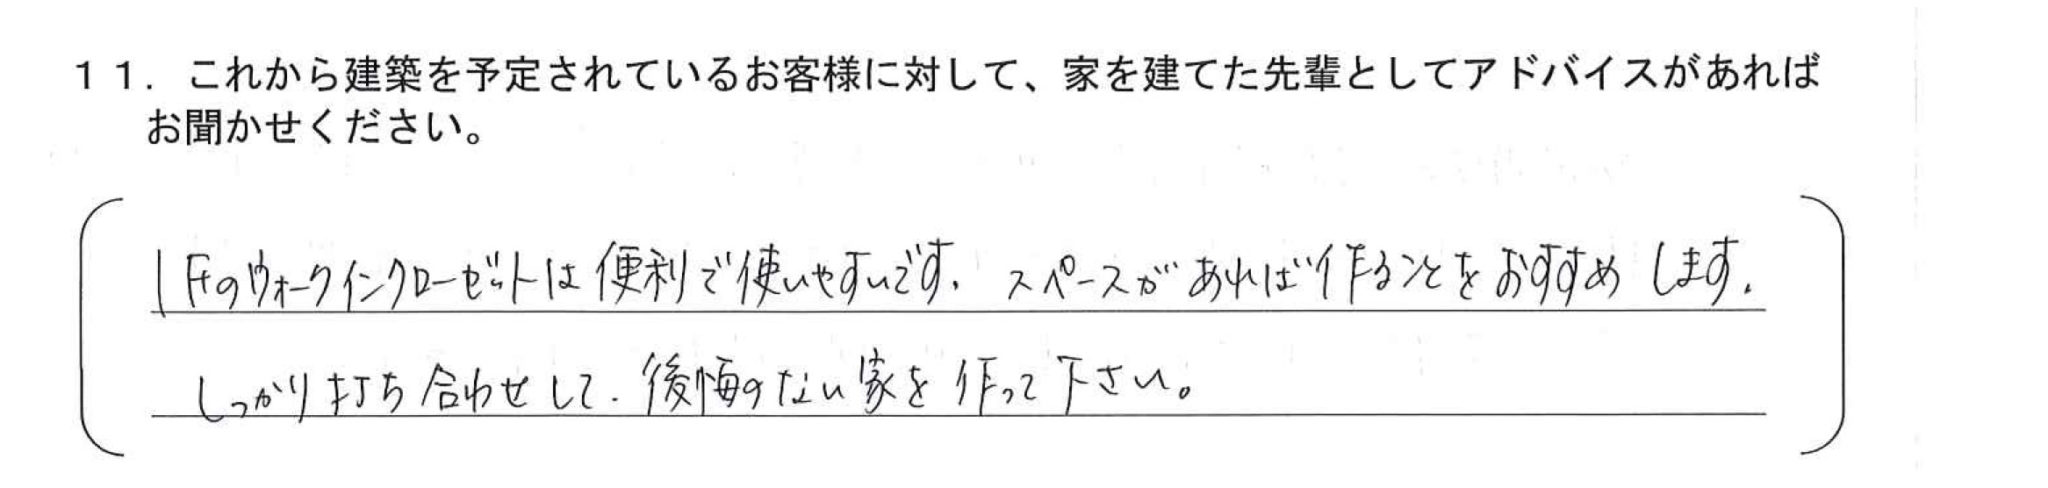 11．これから建築を予定されているお客様に対して、家を建てた先輩としてアドバイスがあれば
お聞かせください。
1Fのウォークインクローゼットは便利で使いやすいです。スペースがあれば作ることをおすすめします。
しっかり打ち合わせして、後悔のない家を作って下さい。